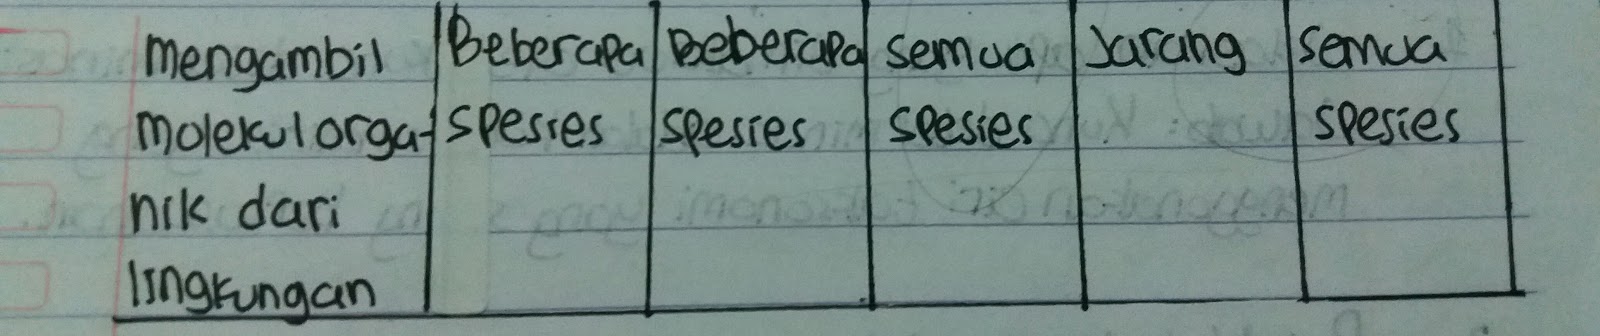 mengambil Beberapa Beberapa semua Jarang semua
molekul orga- spesies spesies spesies spesies
nik dari
lingkungan